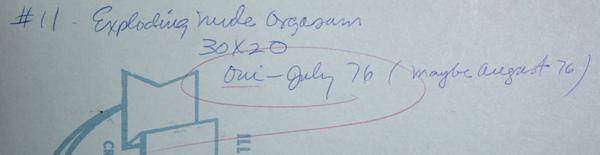 #11 - Exploding nude Orgasam
30X20
Oui - July 76 (maybe August 76)
CR